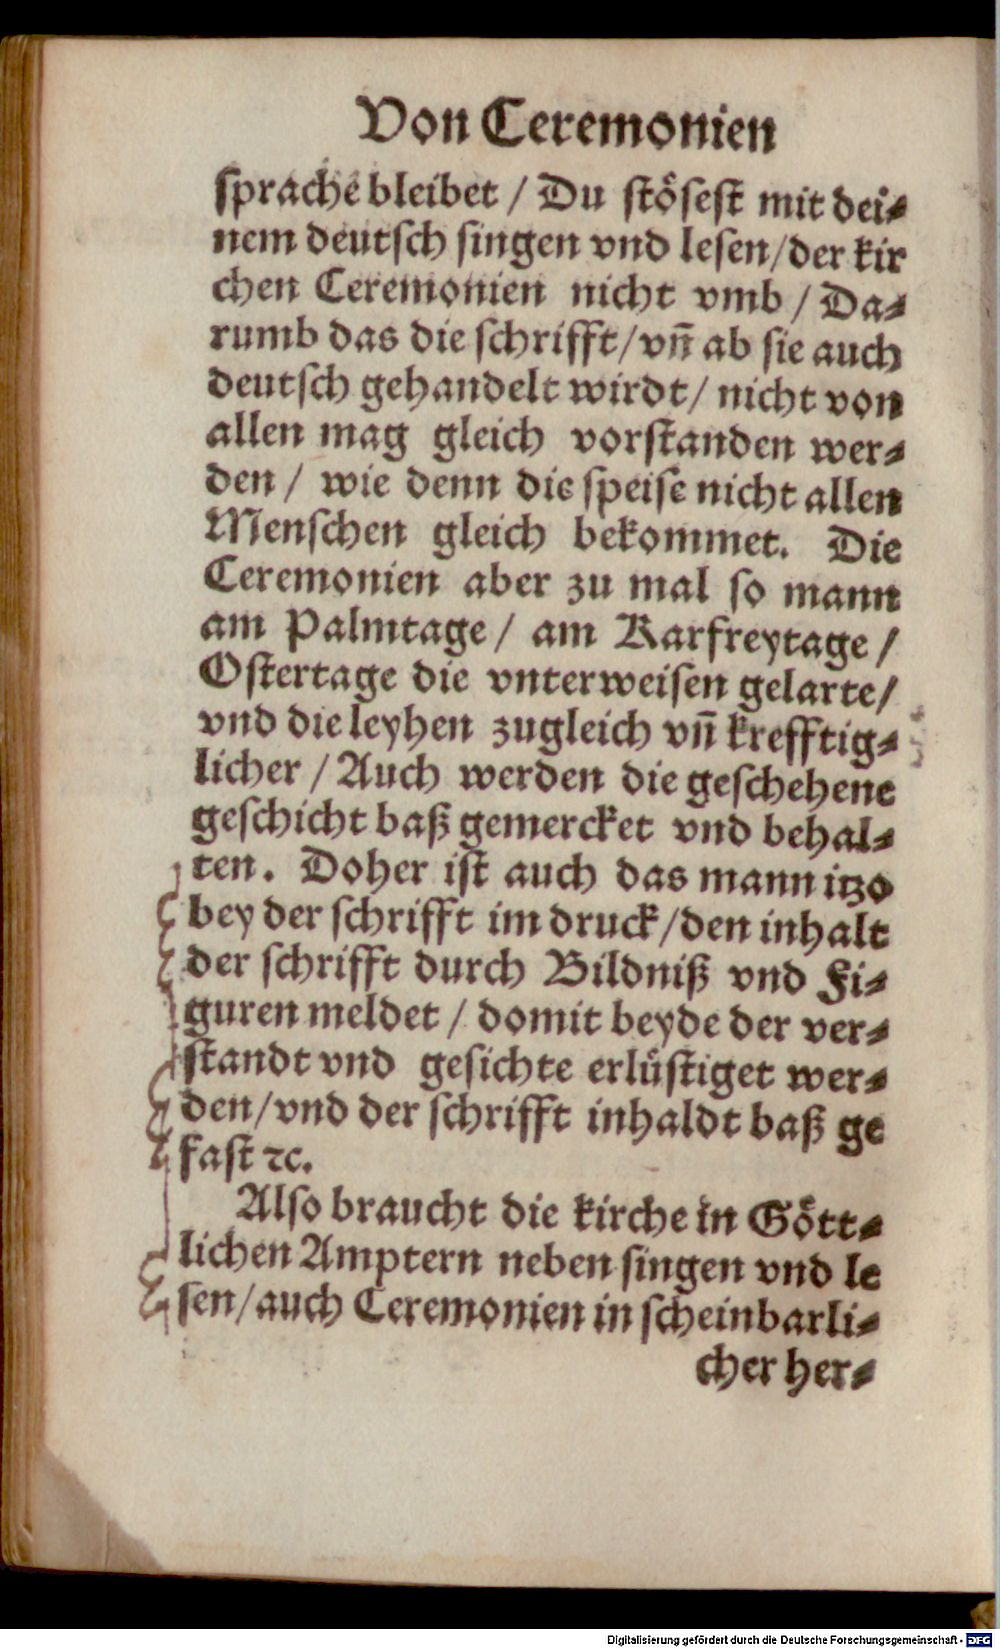 Von Ceremonien
sprache bleibet / Du stösest mit dei⸗
nem deutsch singen vnd lesen/der kir
chen Ceremonien nicht vmb / Da⸗
rumb das die schrifft/vn̄ ab sie auch
deutsch gehandelt wirdt/ nicht von
allen mag gleich vorstanden wer⸗
den / wie denn die speise nicht allen
Menschen gleich bekommet. Die
Ceremonien aber zu mal so mann
am Palmtage / am Karfreytage /
Ostertage die vnterweisen gelarte/
vnd die leyhen zugleich vn̄ krefftig⸗
licher / Auch werden die geschehene
geschicht baß gemercket vnd behal⸗
ten. Doher ist auch das mann itzo
bey der schrifft im druck/den inhalt
der schrifft durch Bildniß vnd Fi⸗
guren meldet / domit beyde der ver⸗
standt vnd gesichte erlüstiget wer⸗
den/vnd der schrifft inhaldt baß ge
fast ⁊c.
Also braucht die kirche in Gött⸗
lichen Amptern neben singen vnd le
sen/auch Ceremonien in scheinbarli⸗
cher her⸗
Digitalisierung gefördert durch die Deutsche Forschungsgemeinschaft - DFG